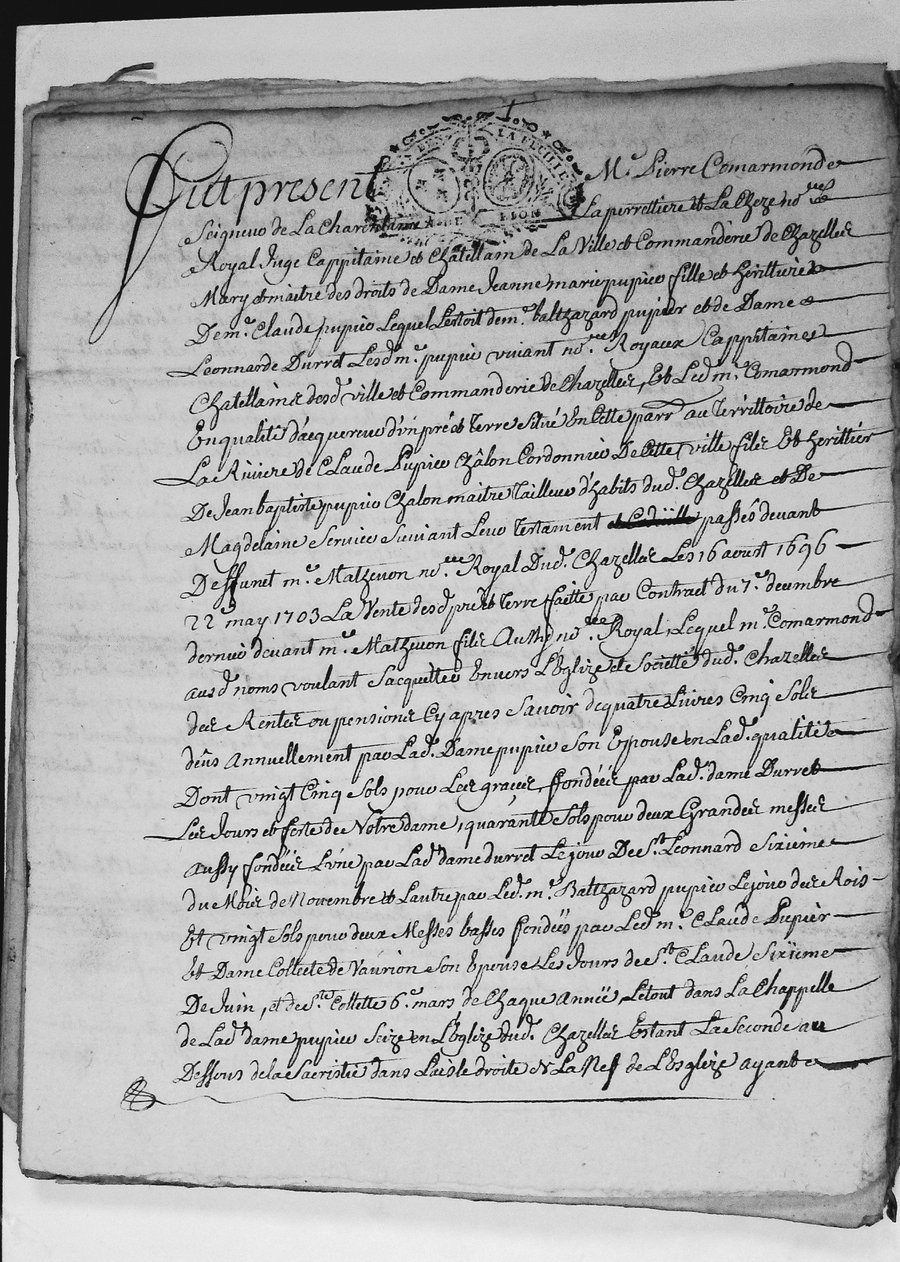 Fut present Mr. Pierre Comarmond
Seigneur de La Charentinne Laperrettiere et La Cheze nore
Royal Juge Cappitaine et Châtellain de La Ville et Commanderie de Chazelles
Mary et maitre des droits de Dame Jeanne marie pupier fille et herittiere
De mr. Claude pupier Lequel L'estoit de mr. balthazard pupier et de Dame
Leonnarde Durret Lesd. mr. pupier vivant nores Royaux Cappitaines
Chatellains desd. ville et Commanderie de Chazelles, Et Led. mr. Comarmond
En qualité d'acquereur d'un pré et terre situé En Cette parr. au Territtoire de
La Riviere de Claude Pupier Châlon Cordonnier De Cette ville fils Et herittier
De Jean baptiste pupier Chalon maitre Tailleur d'habits dud. Chazelles et De
Magdelaine Servier suivant Leur Testament passés devant
Deffunct mr. Matzevon nore. Royal Dud. Chazelles Les 16 aoust 1696
22e may 1703 La Vente desd. pré et Terre ffaitte par Contract du 7e. decembre
dernier devant mr. Matzevon fils Aussy nore. Royal, Lequel mr. Comarmond
ausd. noms voulant s'acquetter Envers L'Eglize et Societté dud. Chazelles
des Rentes ou pensions Cy apres Savoir de quatre Livres Cinq Sols
dëus Annuellement par Lad. Dame pupier son Epouse en Lad. qualitté
Dont vingt Cinq Sols pour Les graces, ffondées par Lad. dame Durret
Les Jours et feste de Notre dame, quarante Sols pour deux Grandes messes
aussy fondées L'une par Lad. dame durret Le jour De St. Leonnard Sixieme
du Mois de Novembre et L'autre par Led. mr. Balthazard pupier Le jour des Rois
Et vingt Sols pour deux Messes basses fondéës par Led. mr. Claude Pupier
Et Dame Collette de Vaurion son Epouse Les Jours de St. Claude Sixïeme
De Juin, et de Ste. Collette 6e. mars de Chaque Annéë Letout dans La Chappelle
de Lad. dame pupier Seize en L'Eglize dud. Chazelles Estant La Seconde au
Dessous de la Sacristie dans L'aisle droite de La Nef de L'Esglize ayant